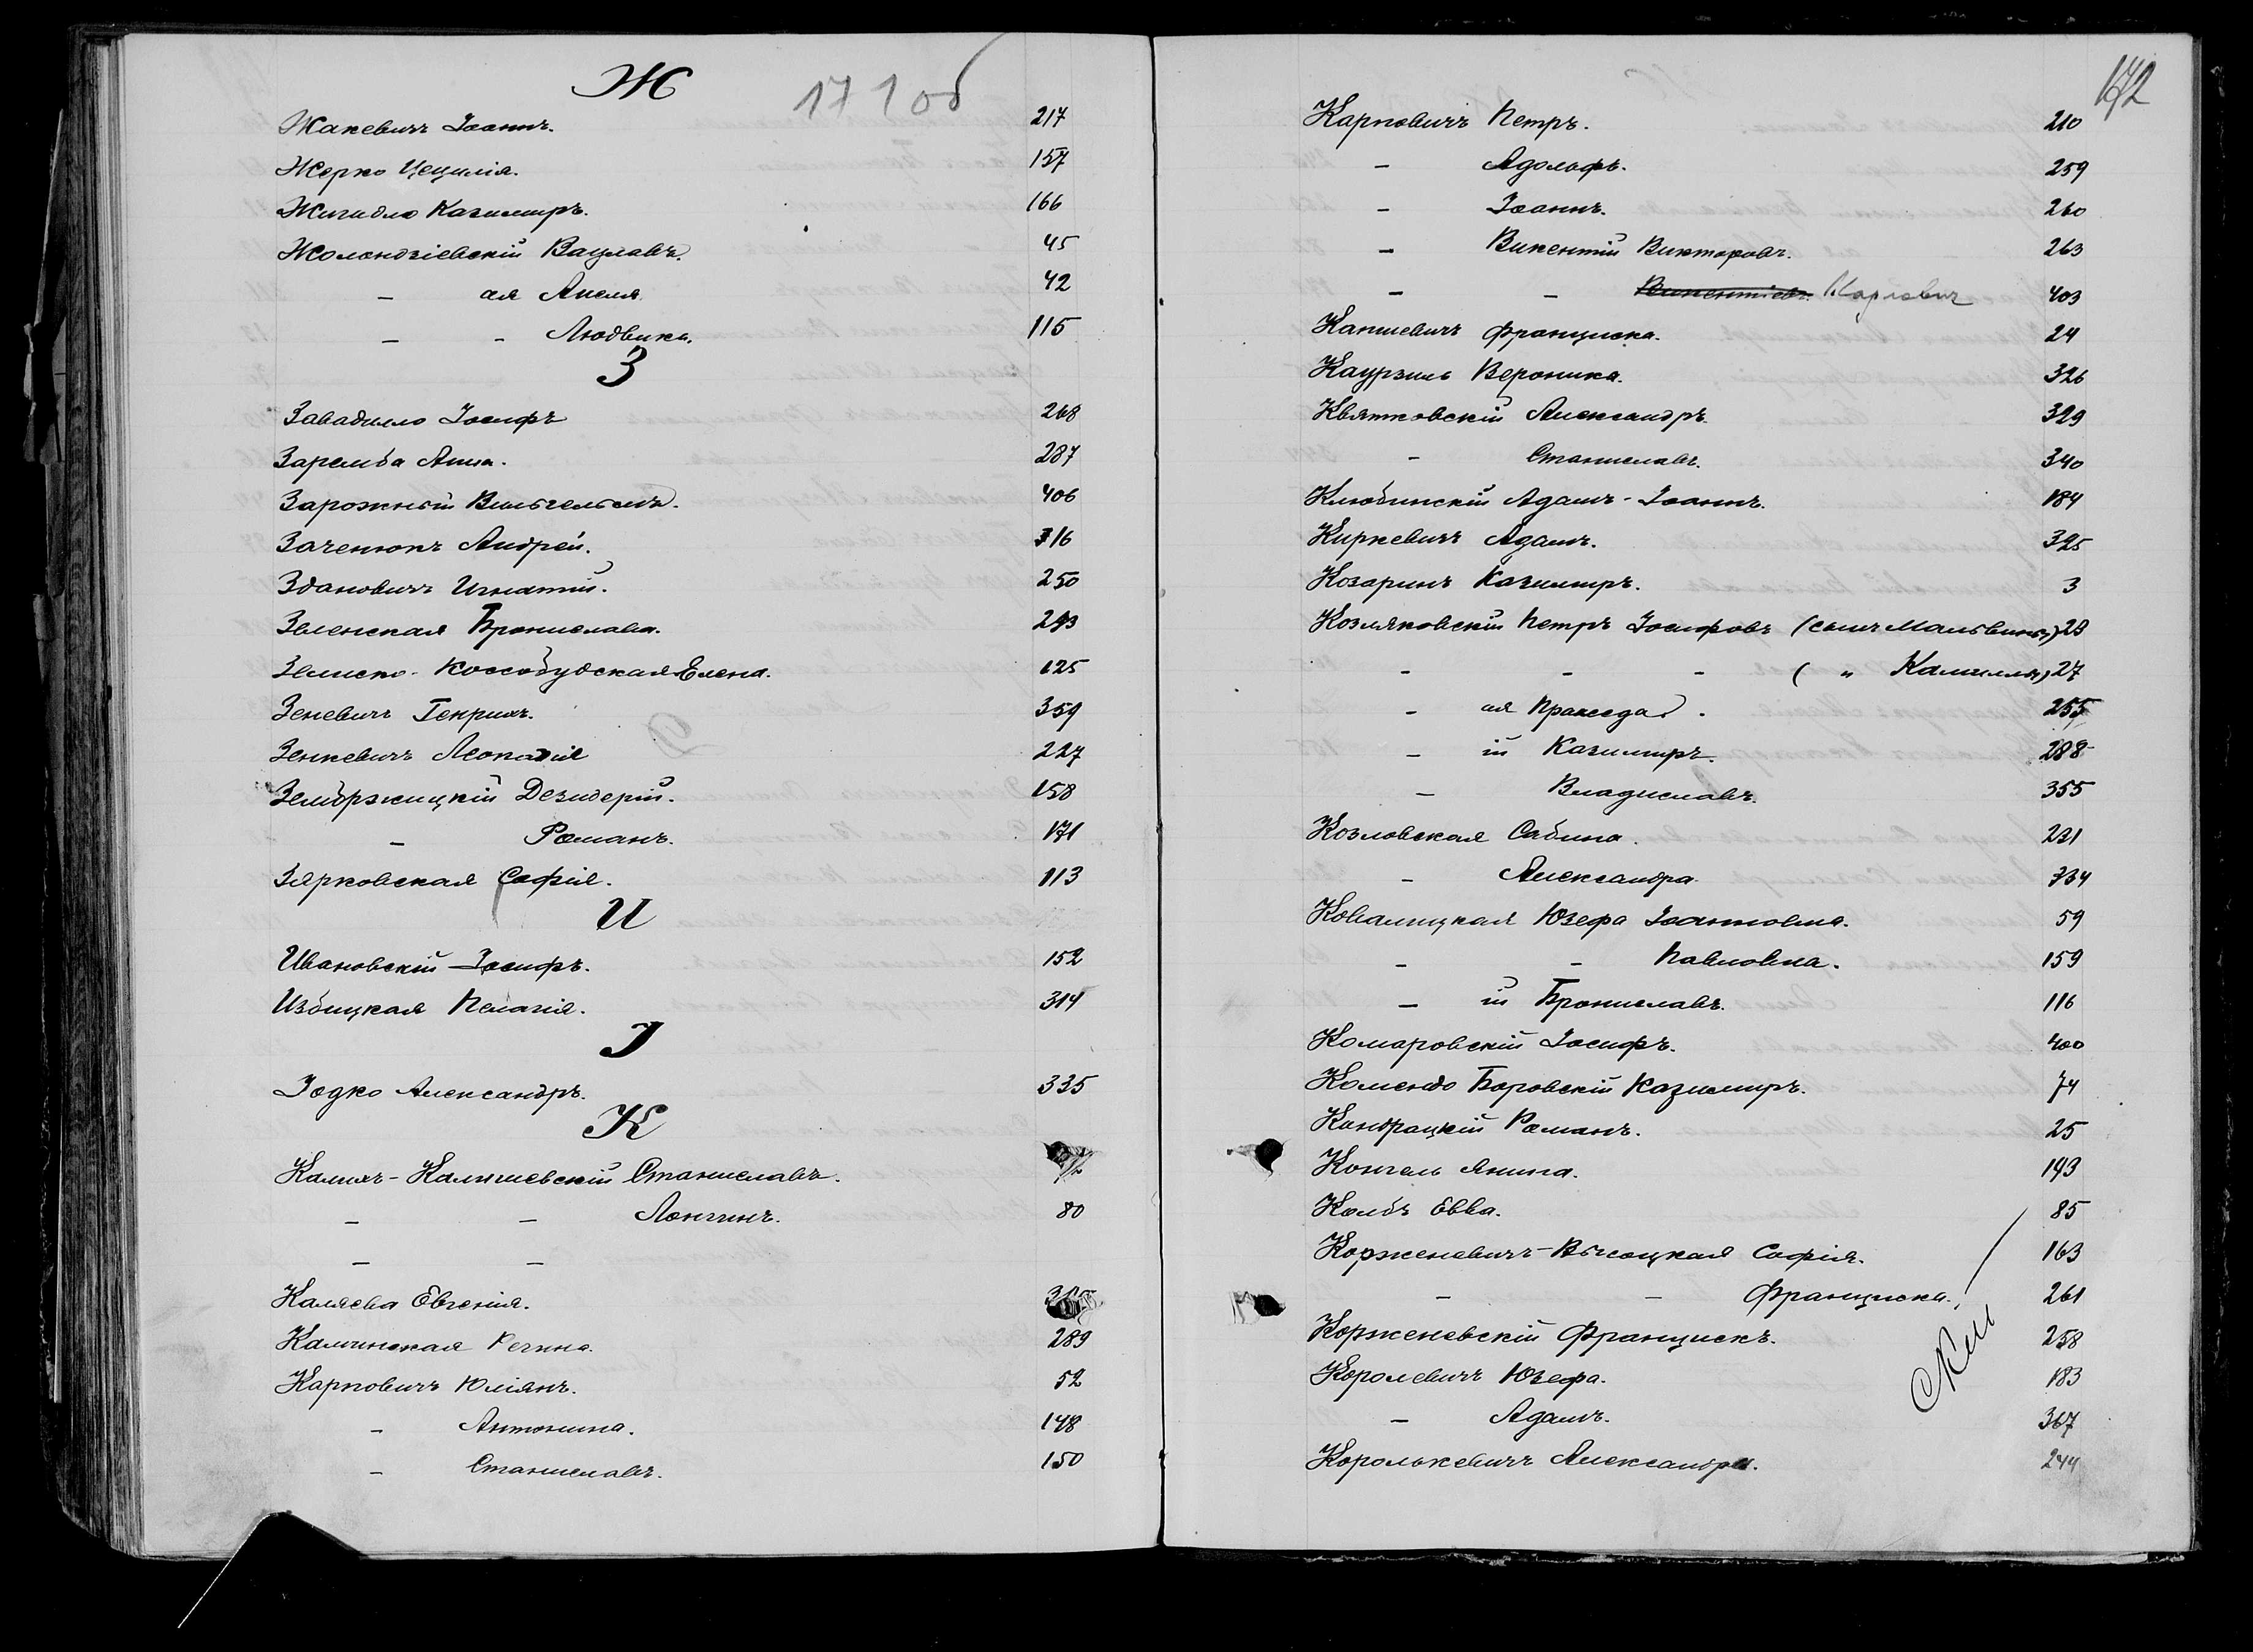 Ж 171 об
Жакевичъ Іоаннъ. 217
Жерко Цецилія. 157
Жигидло Казимиръ. 166
Жолондзіевскій Вацлавъ. 45
– ая Анеля. 42
– – Людвика. 115
З
Завадилло Іосифъ 268
Заремба Анна. 287
Зарожный Вильгельмъ. 406
Заченюкъ Андрей. 316
Здановичъ Игнатій. 250
Зеленская Бронислава. 293
Зелиско-Коссобудская Елена. 125
Зеневичъ Генрихъ. 359
Зенкевичъ Леокадія 227
Зембржицкій Дезидерій. 158
– Романъ. 171
Зярковская Софія. 113
И
Ивановскій Іосифъ. 152
Избицкая Пелагія. 314
І
Іодко Александръ. 335
К
Калихъ-Калишевскій Станиславъ.
– – Лонгинъ. 80
– –
Каляева Евгенія.
Калчинская Регина. 289
Карповичъ Юліянъ. 52
– Антонина. 148
– Станиславъ. 150
172
Карповичъ Петръ. 210
– Адольфъ. 259
– Іоаннъ. 260
– Викентій Викторовъ. 263
– – Викентіевъ. Карлович 403
Капшевичъ Франциска. 24
Каурзиль Вероника. 326
Квятковскій Александръ. 329
– Станиславъ. 340
Клюбинскій Адамъ-Іоаннъ. 184
Киркевичъ Адамъ. 325
Козаринъ Казимиръ. 3
Козляковскій Петръ Іосифовъ (сынъ Мальвины) 23
– – – ( „ Камиллы) 27
– ая Праксeда. 255
– ій Казимиръ. 288
– Владиславъ. 355
Козловская Сабина. 231
– Александра. 334
Ковалицкая Юзефа Іоанновна. 59
– – Павловна. 159
– ій Брониславъ. 116
Комаровскій Іосифъ. 400
Комендо Боровскій Казимиръ. 74
Кондрацкій Романъ. 25
Конгель Янина. 193
Колбъ Евва. 85
Корженевичъ-Высоцкая Софія. 163
– – Франциска. 261
Корженевскій Францискъ. 258
Королевичъ Юзефа. 183
– Адамъ. 367
Королькевичъ Александра. 244